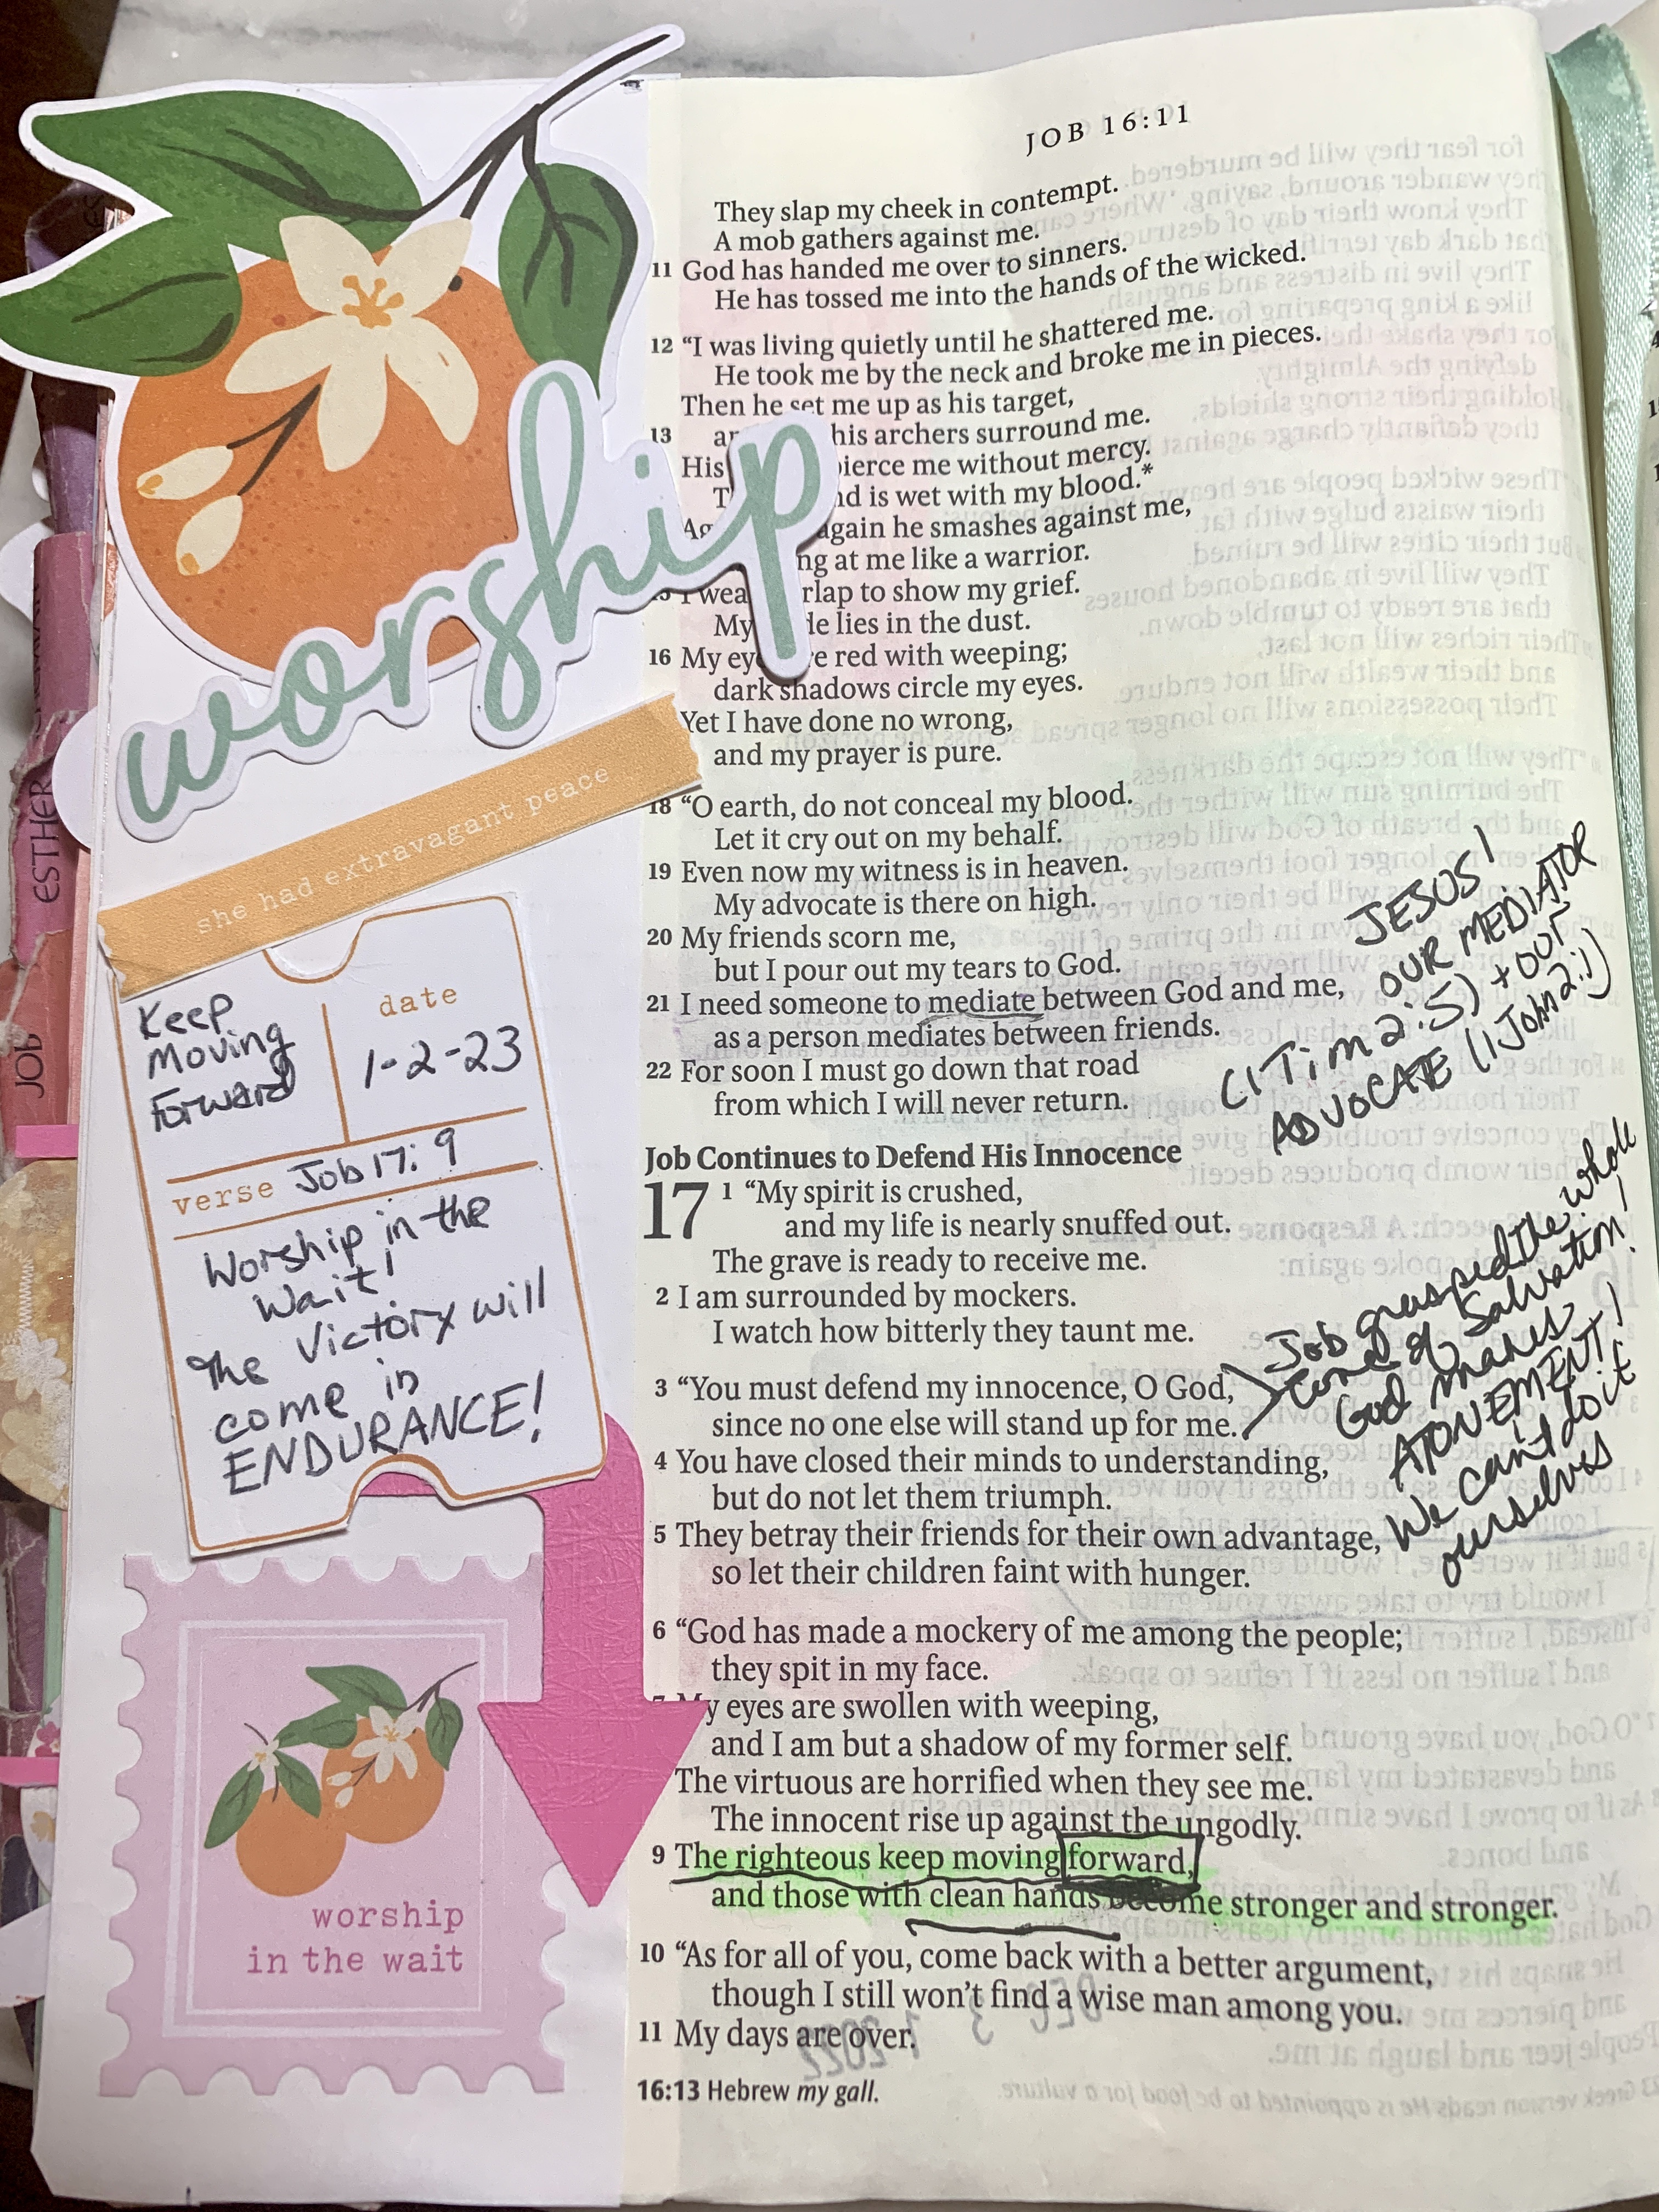 JOB 16:11
They slap my cheek in contempt.
A mob gathers against me.
11 God has handed me over to sinners.
He has tossed me into the hands of the wicked.
12 “I was living quietly until he shattered me.
He took me by the neck and broke me in pieces.
Then he set me up as his target,
13 his archers surround me.
His me without mercy.
is wet with my blood.*
again he smashes against me,
at me like a warrior.
I to show my grief.
My lies in the dust.
16 My red with weeping;
dark shadows circle my eyes.
Yet I have done no wrong,
and my prayer is pure.
18 “O earth, do not conceal my blood.
Let it cry out on my behalf.
19 Even now my witness is in heaven.
My advocate is there on high.
20 My friends scorn me,
but I pour out my tears to God.
21 I need someone to mediate between God and me,
as a person mediates between friends.
22 For soon I must go down that road
from which I will never return.
Job Continues to Defend His Innocence
17 1 “My spirit is crushed,
and my life is nearly snuffed out.
The grave is ready to receive me.
2 I am surrounded by mockers.
I watch how bitterly they taunt me.
3 “You must defend my innocence, O God,
since no one else will stand up for me.
4 You have closed their minds to understanding,
but do not let them triumph.
5 They betray their friends for their own advantage,
so let their children faint with hunger.
6 “God has made a mockery of me among the people;
they spit in my face.
My eyes are swollen with weeping,
and I am but a shadow of my former self.
The virtuous are horrified when they see me.
The innocent rise up against the ungodly.
9 The righteous keep moving forward,
and those with clean hands become stronger and stronger.
10 “As for all of you, come back with a better argument,
though I still won’t find a wise man among you.
11 My days are over.
16:13 Hebrew my gall.
JESUS!
OUR MEDIATOR
(1 Tim 2:5) + our
ADVOCATE (1 John 2:1)
Job grasped the whole
of Salvation!
God makes
ATONEMENT!
We can't do it
ourselves
worship
she had extravagant peace
Keep
Moving
Forward
date
1-2-23
verse Job 17:9
Worship in the
Wait!
The Victory will
come in
ENDURANCE!
worship
in the wait
ESTHER
JOB